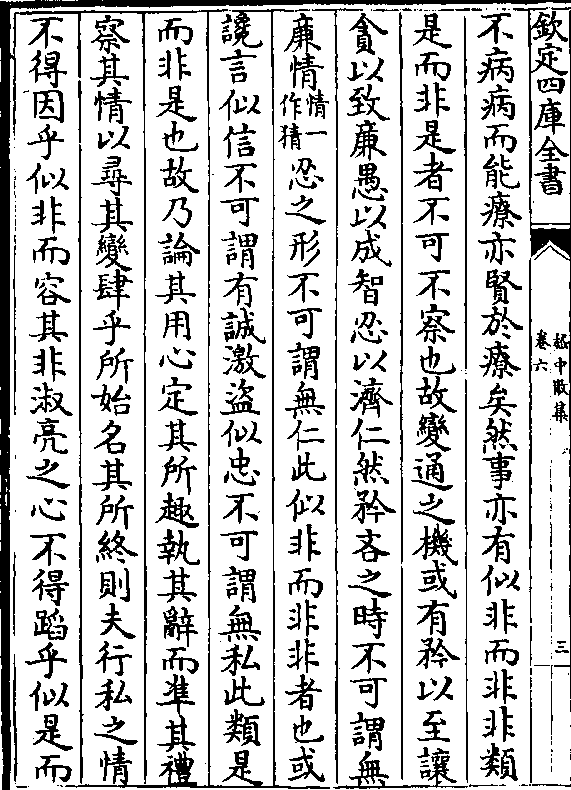 欽定四庫全書
嵇中散集
卷六
三
不病病而能療亦賢於療矣然事亦有似非而非非類
是而非是者不可不察也故變通之機或有矜以至讓
貪以致廉愚以成智忍以濟仁然矜吝之時不可謂無
廉情情一作猜忍之形不可謂無仁此似非而非非者也或
讒言似信不可謂有誠激盜似忠不可謂無私此類是
而非是也故乃論其用心定其所趣執其辭而準其禮
察其情以尋其變肆乎所始名其所終則夫行私之情
不得因乎似非而容其非淑亮之心不得蹈乎似是而